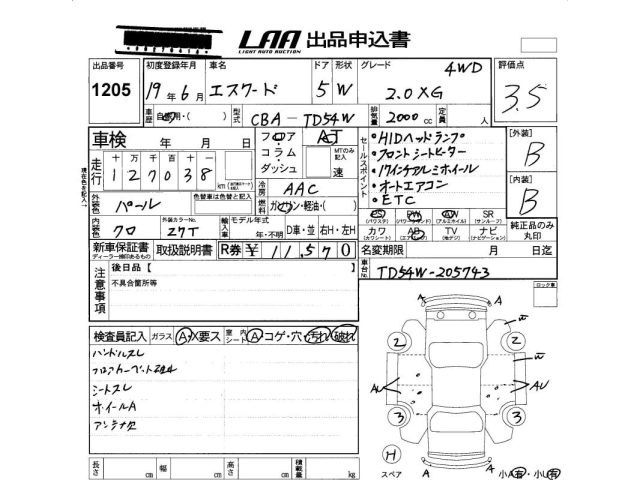 LAA 出品申込書
LIGHT AUTO AUCTION
出品番号 初度登録年月 車名 ドア 形状 グレード 4WD 評価点
1205 19年6月 エスクード 5 W 2.0XG 3.5
車歴 自家用・( ) 型式 CBA-TD54W 排気量 2000cc 定員 人
車検 年 月 日 フロア・コラム・ダッシュ AT MTのみ記入 速
走行 十万千百十
127038
外装色 パール 色替車は色替と記入 冷房 AAC
燃料 ガソリン・軽油・( )
内装色 クロ 外装カラーNo. Z7T 輸入車 モデル年式 年・不明 D車・並 右H・左H
セールスポイント
・HIDヘッドランプ
・フロントシートヒーター
・17インチアルミホイール
・オートエアコン
・ETC
[外装] B
[内装] B
PS PW AW SR
(パワステ) (パワーウインド) (アルミホイル) (サンルーフ)
カワ AB TV ナビ
(カワシート) (エアバッグ) (地デジ) (ナビゲーション)
純正品のみ丸印
新車保証書 取扱説明書 R券 ¥11,570
ディーラー捺印あるもの
名変期限 月 日迄
車台No. TD54W-205743
注意事項
後日品【
不具合箇所等
ロック車
検査員記入 ガラス A・X要ス 室内シート A・コゲ・穴・汚れ・破れ
ハンドルスレ
シートスレ
ホイールA
アンテナ欠
A A
W
2 2
W
AU AU
3 3
H
スペア
A A
小A有・小U有
長さ cm 幅 cm 高さ cm 積載量 kg